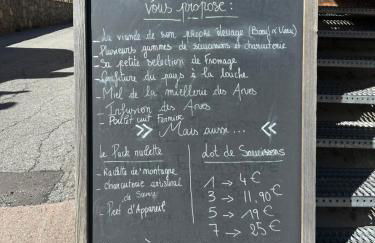 vous propose :
- La viande de son propre élevage (Boeuf & Veau)
- Plusieurs gammes de saucissons et charcuterie
- Sa petite sélection de Fromage
- Confiture du pays à la louche
- Miel de la miellerie des Arves
- Infusion des Arves
- Poulet cuit Fermier
>> Mais aussi... <<
Le Pack raclette
- Raclette de montagne
- charcuterie artisanal
de Savoie
- Pret d'Appareil
Lot de Saucissons
1 → 4 €
3 → 11.90 €
5 → 19 €
7 → 25 €